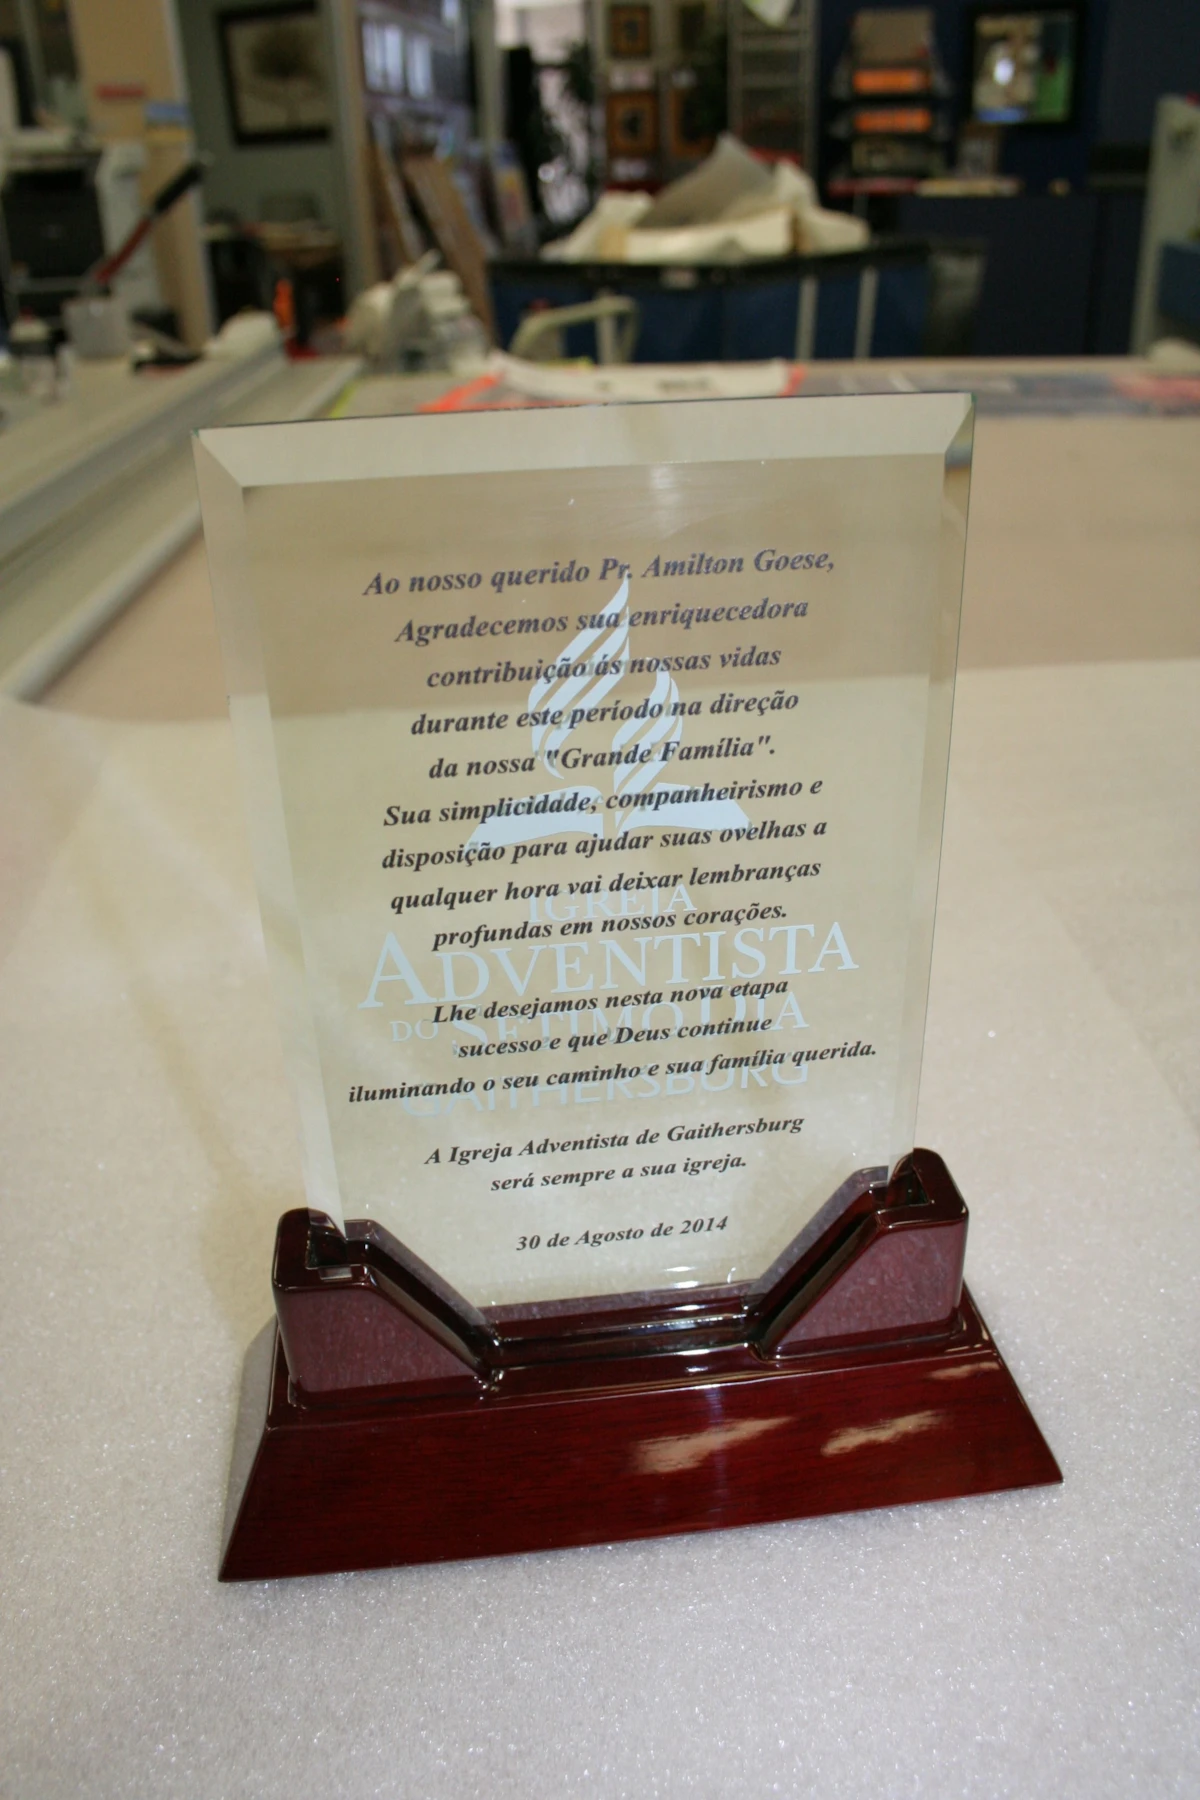 Ao nosso querido Pr. Amilton Goese,
Agradecemos sua enriquecedora
contribuição ás nossas vidas
durante este período na direção
da nossa "Grande Família".
Sua simplicidade, companheirismo e
disposição para ajudar suas ovelhas a
qualquer hora vai deixar lembranças
profundas em nossos corações.
Lhe desejamos nesta nova etapa
sucesso e que Deus continue
iluminando o seu caminho e sua família querida.
A Igreja Adventista de Gaithersburg
será sempre a sua igreja.
30 de Agosto de 2014
IGREJA
ADVENTISTA
DO SÉTIMO DIA
GAITHERSBURG